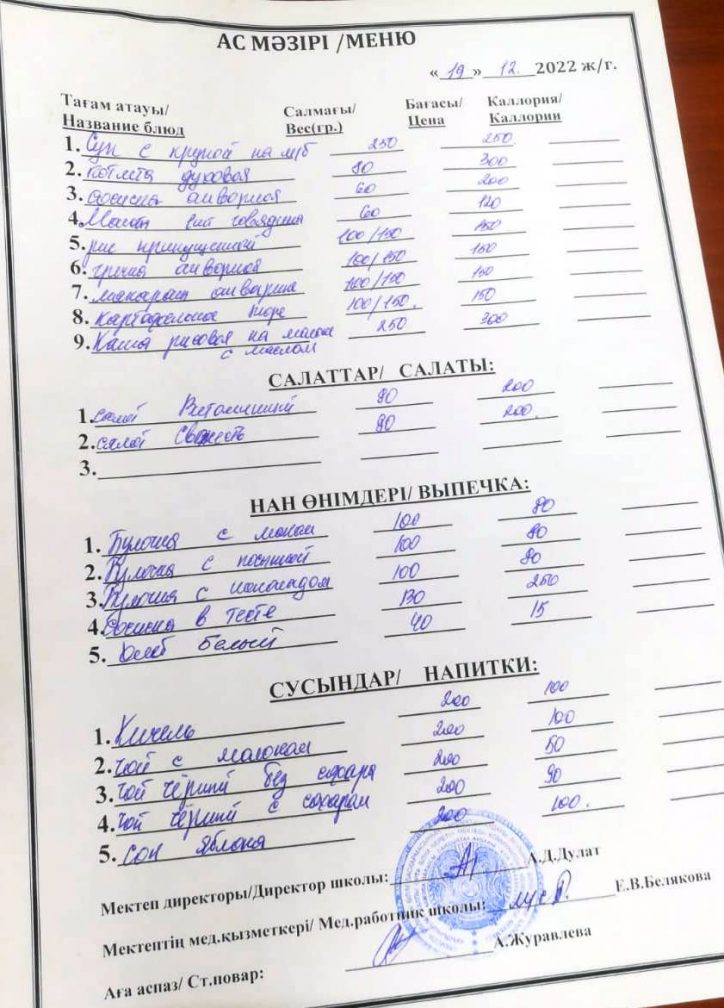 АС МӘЗІРІ /МЕНЮ
« 19 » 12. 2022 ж/г.
Тағам атауы/ Салмағы/ Бағасы/ Каллория/
Название блюд Вес(гр.) Цена Каллории
1. Суп с крупой на м/б 250 250
2. котлета духовая 90 300
3. сосиска отворная 60 200
4. говядина 60 120
5. рис припущенный 100/150 150
6. гречка отворная 100/150 150
7. макароны отворные 100/150 150
8. картофельное пюре 100/150. 150
9. Каша рисовая на молоке 250 300
с маслом
САЛАТТАР/ САЛАТЫ:
1. салат Витаминный 90 200
2. салат Свежесть 90 200.
3.
НАН ӨНІМДЕРІ/ ВЫПЕЧКА:
1. Булочка с маком 100 80
2. Булочка с посыпкой 100 80
3. Булочка с шоколадом 100 80
4. Сосиска в тесте 130 250
5. Хлеб белый 40 15
СУСЫНДАР/ НАПИТКИ:
1. Кисель 200 100
2. Чай с молоком 200 100
3. Чай чёрный без сахара 200 50
4. Чай чёрный с сахаром 200 90
5. Сок яблоко 200 100.
Мектеп директоры/Директор школы: А.Д.Дулат
Мектептің мед.қызметкері/ Мед.работник школы: Е.В.Белякова
Аға аспаз/ Ст.повар: А.Журавлева